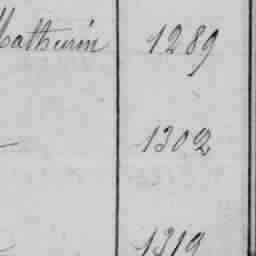 Mathurin 1289
1302
1319